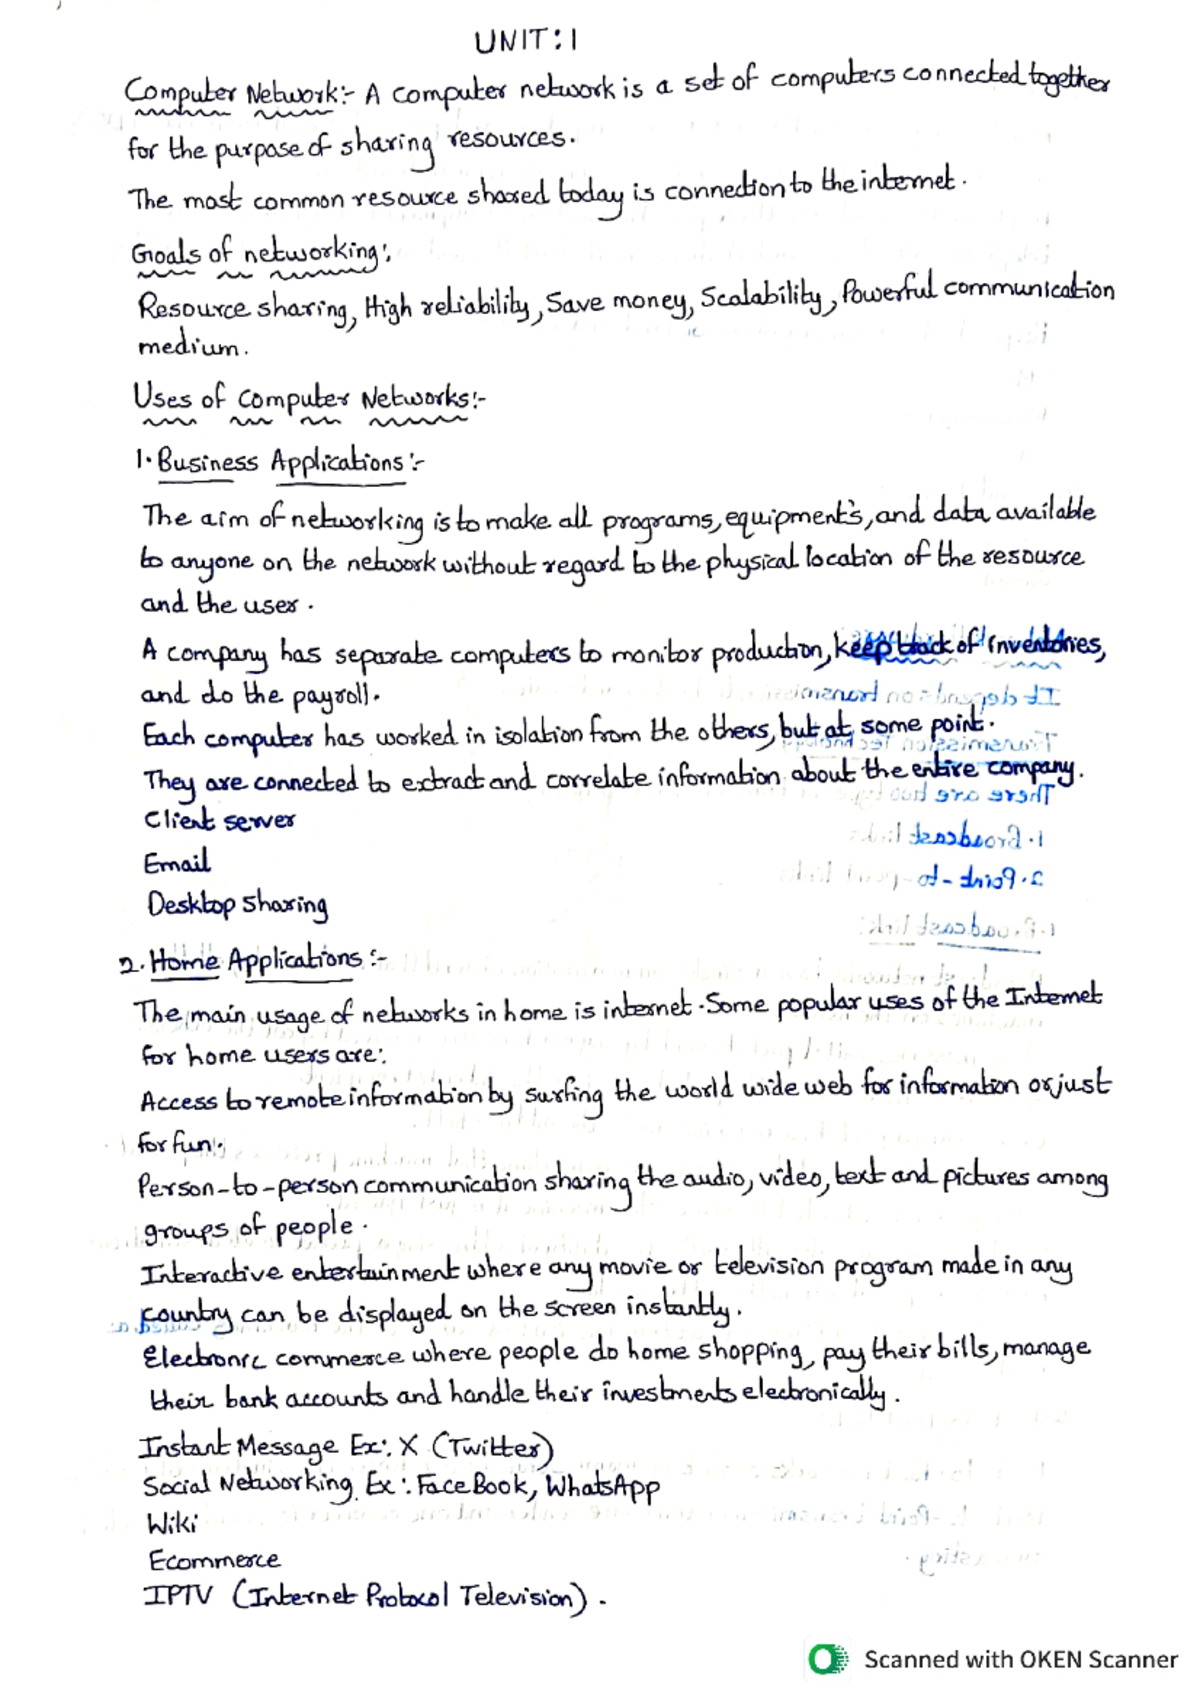 UNIT: 1
Computer Network:- A computer network is a set of computers connected together
for the purpose of sharing resources.
The most common resource shared today is connection to the internet.
Goals of networking:
Resource sharing, High reliability, Save money, Scalability, Powerful communication
medium.
Uses of Computer Networks:-
1. Business Applications:-
The aim of networking is to make all programs, equipment's, and data available
to anyone on the network without regard to the physical location of the resource
and the user.
A company has separate computers to monitor production, keep track of inventories,
and do the payroll.
Each computer has worked in isolation from the others, but at some point.
They are connected to extract and correlate information about the entire company.
Client server
Email
Desktop sharing
2. Home Applications:-
The main usage of networks in home is internet. Some popular uses of the Internet
for home users are:
Access to remote information by surfing the world wide web for information or just
for fun.
Person-to-person communication sharing the audio, video, text and pictures among
groups of people.
Interactive entertainment where any movie or television program made in any
country can be displayed on the screen instantly.
Electronic commerce where people do home shopping, pay their bills, manage
their bank accounts and handle their investments electronically.
Instant Message Ex: X (Twitter)
Social Networking Ex: FaceBook, WhatsApp
Wiki
Ecommerce
IPTV (Internet Protocol Television).
Scanned with OKEN Scanner